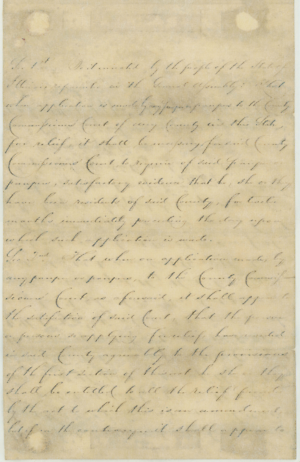 Sec 1st. Be it enacted by the people of the State of
Illinois represented in the General Assembly: That
when application is made by any pauper or paupers to the County
Commissioners Court of any County in this State,
for relief, it shall be necessary for said County
Commissioners Court to require of said pauper or
paupers, satisfactory evidence that he, she or they
have been residents of said County, for twelve
months immediately preceding the day upon
which such application is made.
Sec 2nd. That when on application made by
any pauper or paupers, to the County Commis
sioners Court as aforesaid, it shall appear to
the satisfaction of said Court, that the person
or persons so applying for relief, have resided
in said County agreeably to the provisions
of the first section of this act he she or they
shall be entitled to all the relief granted
by the act to which this is an amendment
but if on the contrary it shall appear to